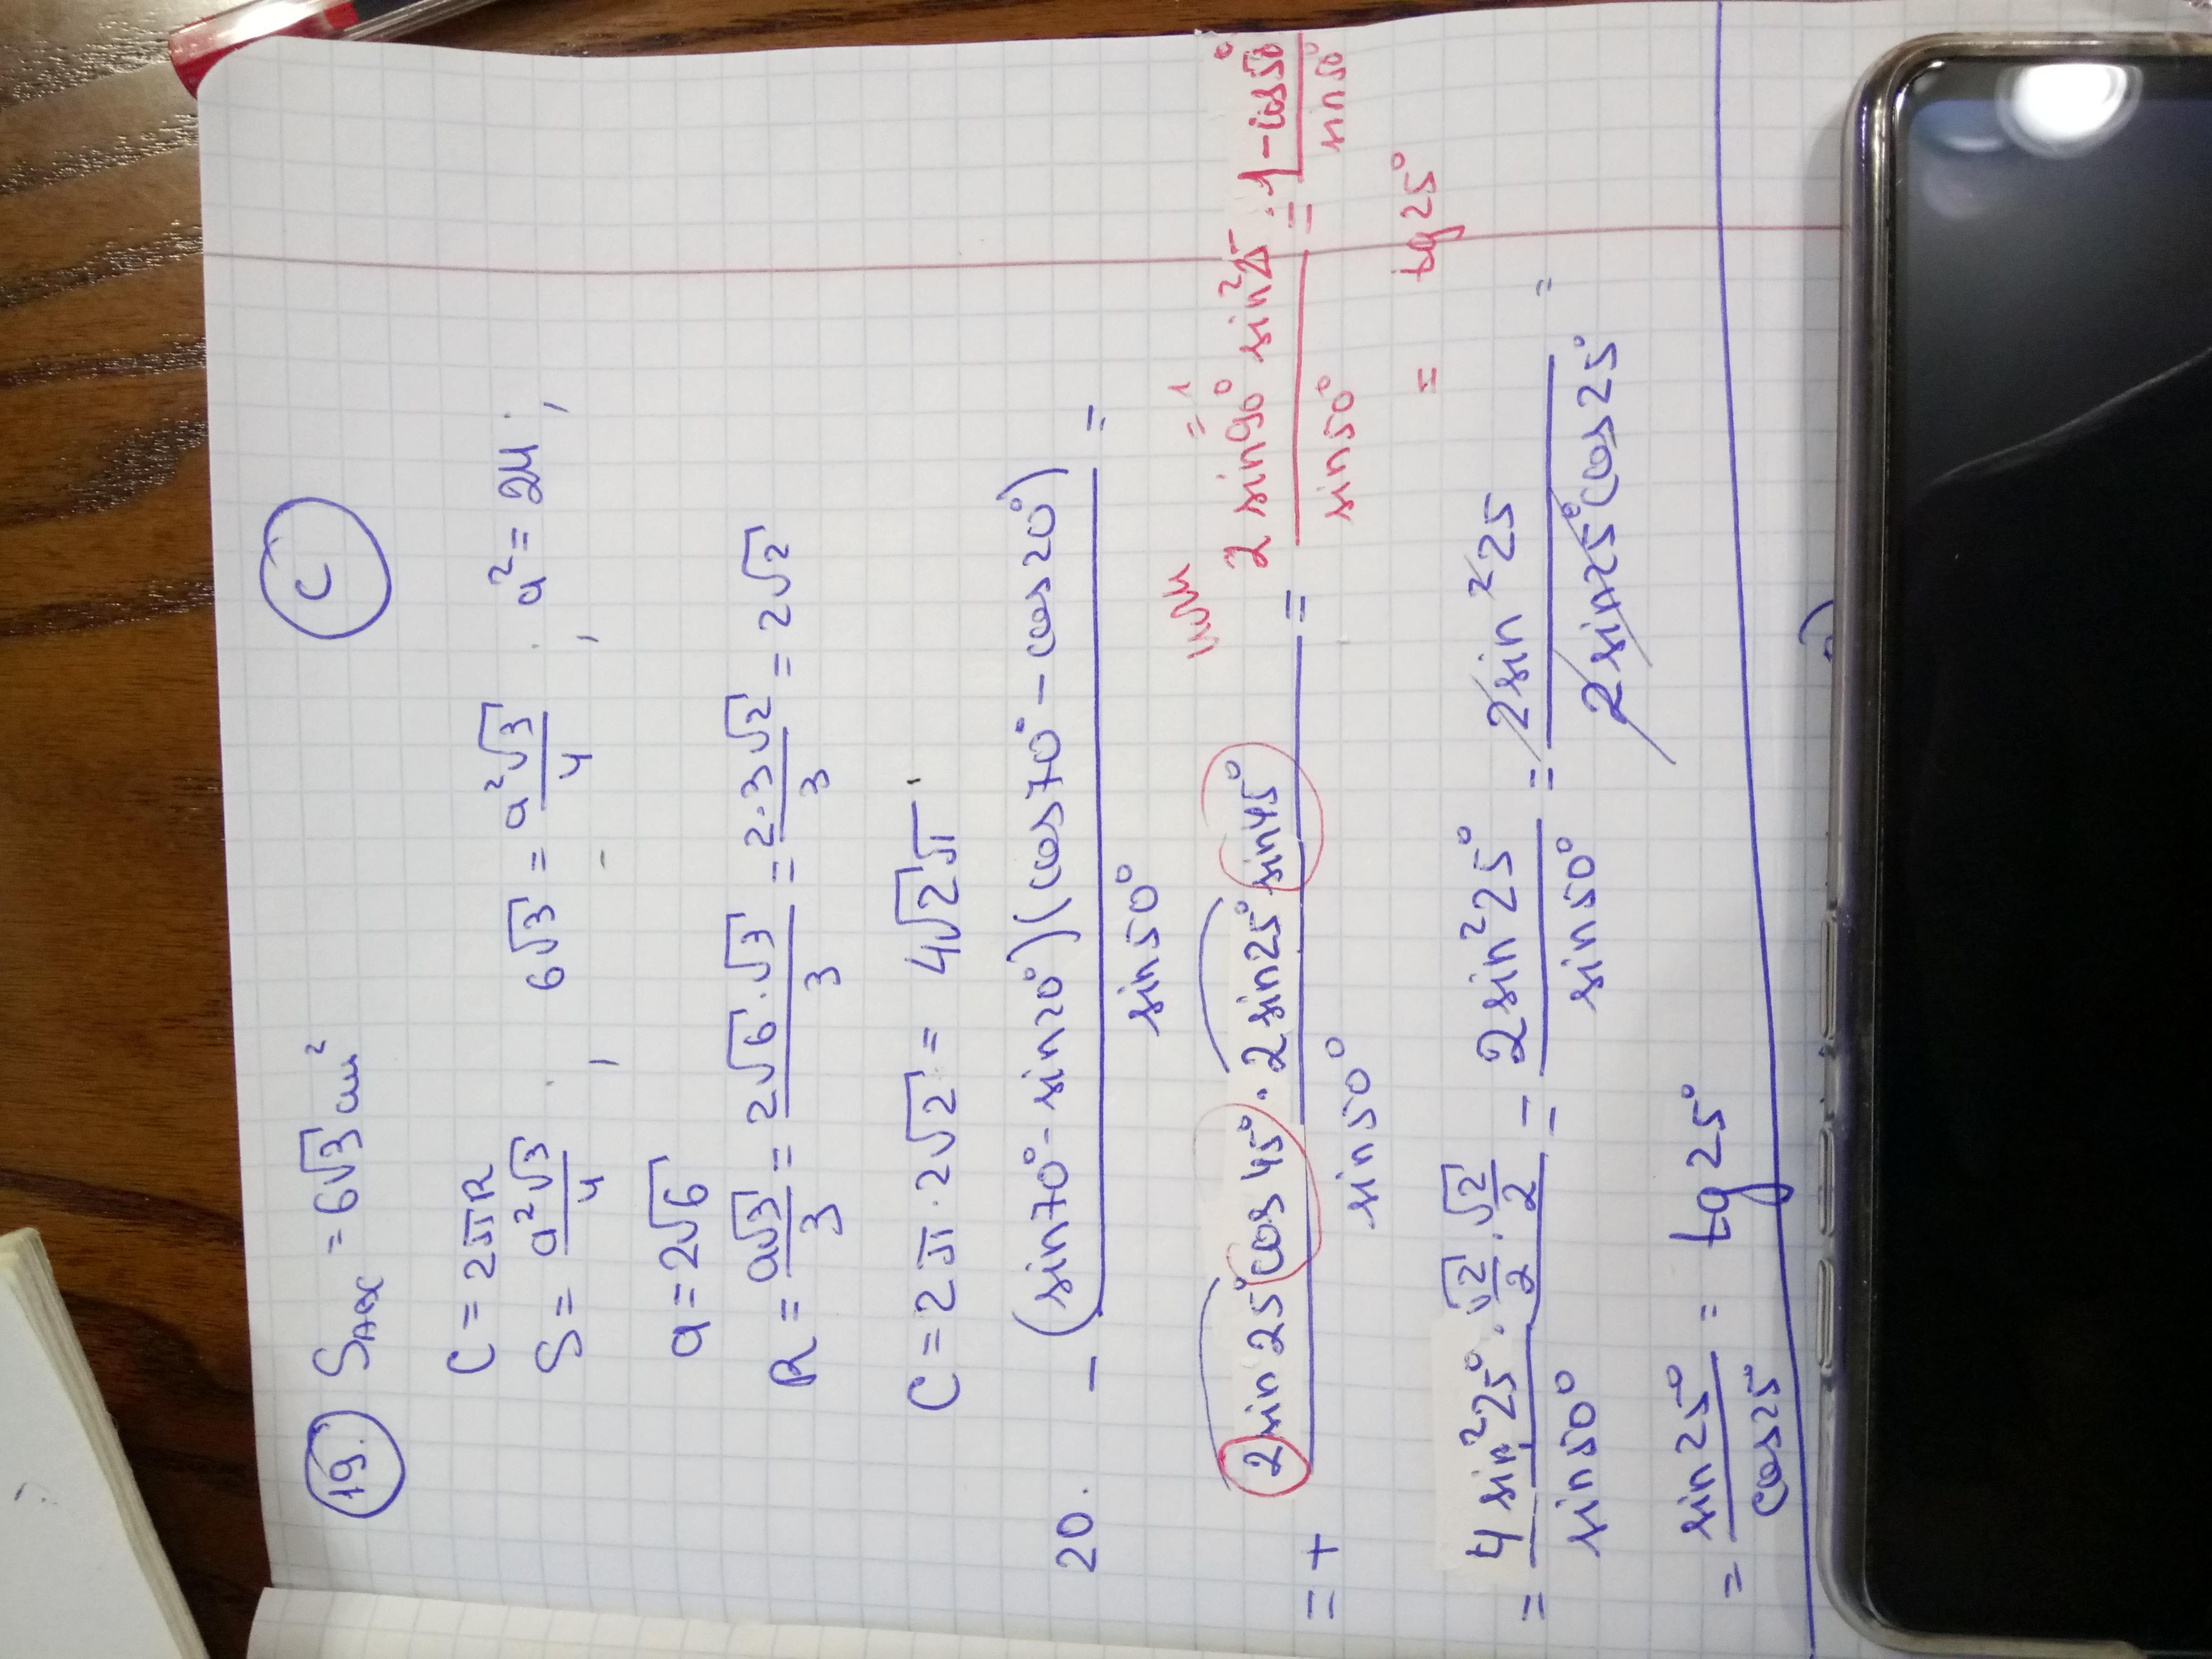 19. S_ABC = 6√3 cm² C
C = 2πR
S = a²√3/4 , 6√3 = a²√3/4 , a² = 24 ;
a = 2√6
R = a√3/3 = 2√6·√3/3 = 2·3√2/3 = 2√2
C = 2π·2√2 = 4√2π
20. - (sin70°-sin20°)(cos70°-cos20°)/sin50° =
= + 2sin25°cos45°·2sin25°sin45°/sin50° = или 2sin90° sin²25/sin50° = 1-cos50°/sin50°
=1
= tg25°
= 4sin²25°·√2/2·√2/2/sin50° = 2sin²25°/sin50° = 2sin²25/2sin25°cos25° =
= sin25°/cos25 = tg25°